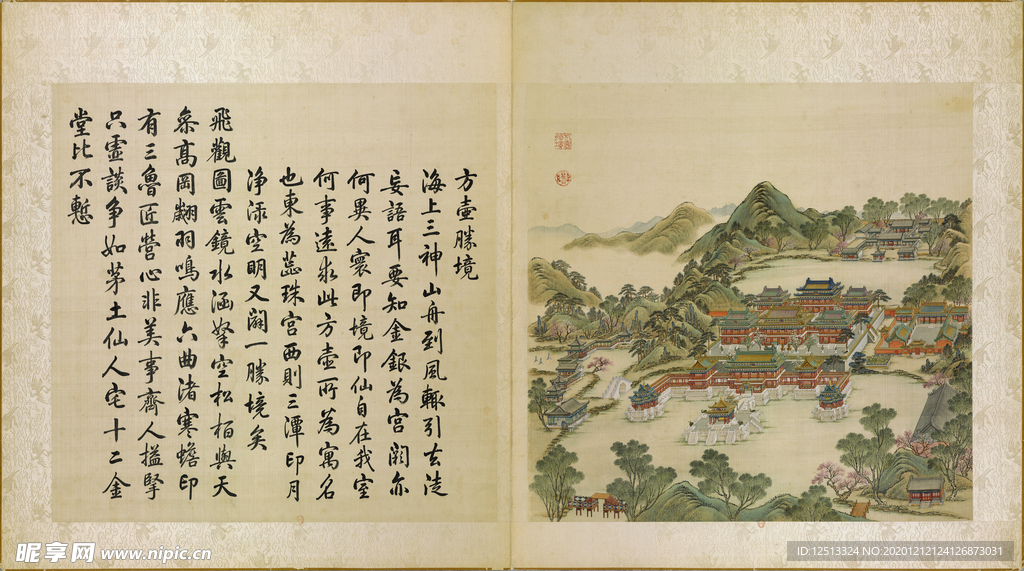 方壺勝境
海上三神山舟到風輙引去徒
妄語耳要知金銀為宮闕亦
何異人寰即境即仙自在我室
何事遠求此方壺所為寓名
也東為蕊珠宮西則三潭印月
淨渌空明又闢一勝境矣
飛觀圖雲鏡水涵拏空松栢與天
叅髙岡翽羽鳴應六曲渚寒蟾印
有三魯匠營心非美事齊人搤掔
只虛談争如茅土仙人宅十二金
堂比不慙
昵享网 www.nipic.cn
ID:12513324 NO:20201212124126873031